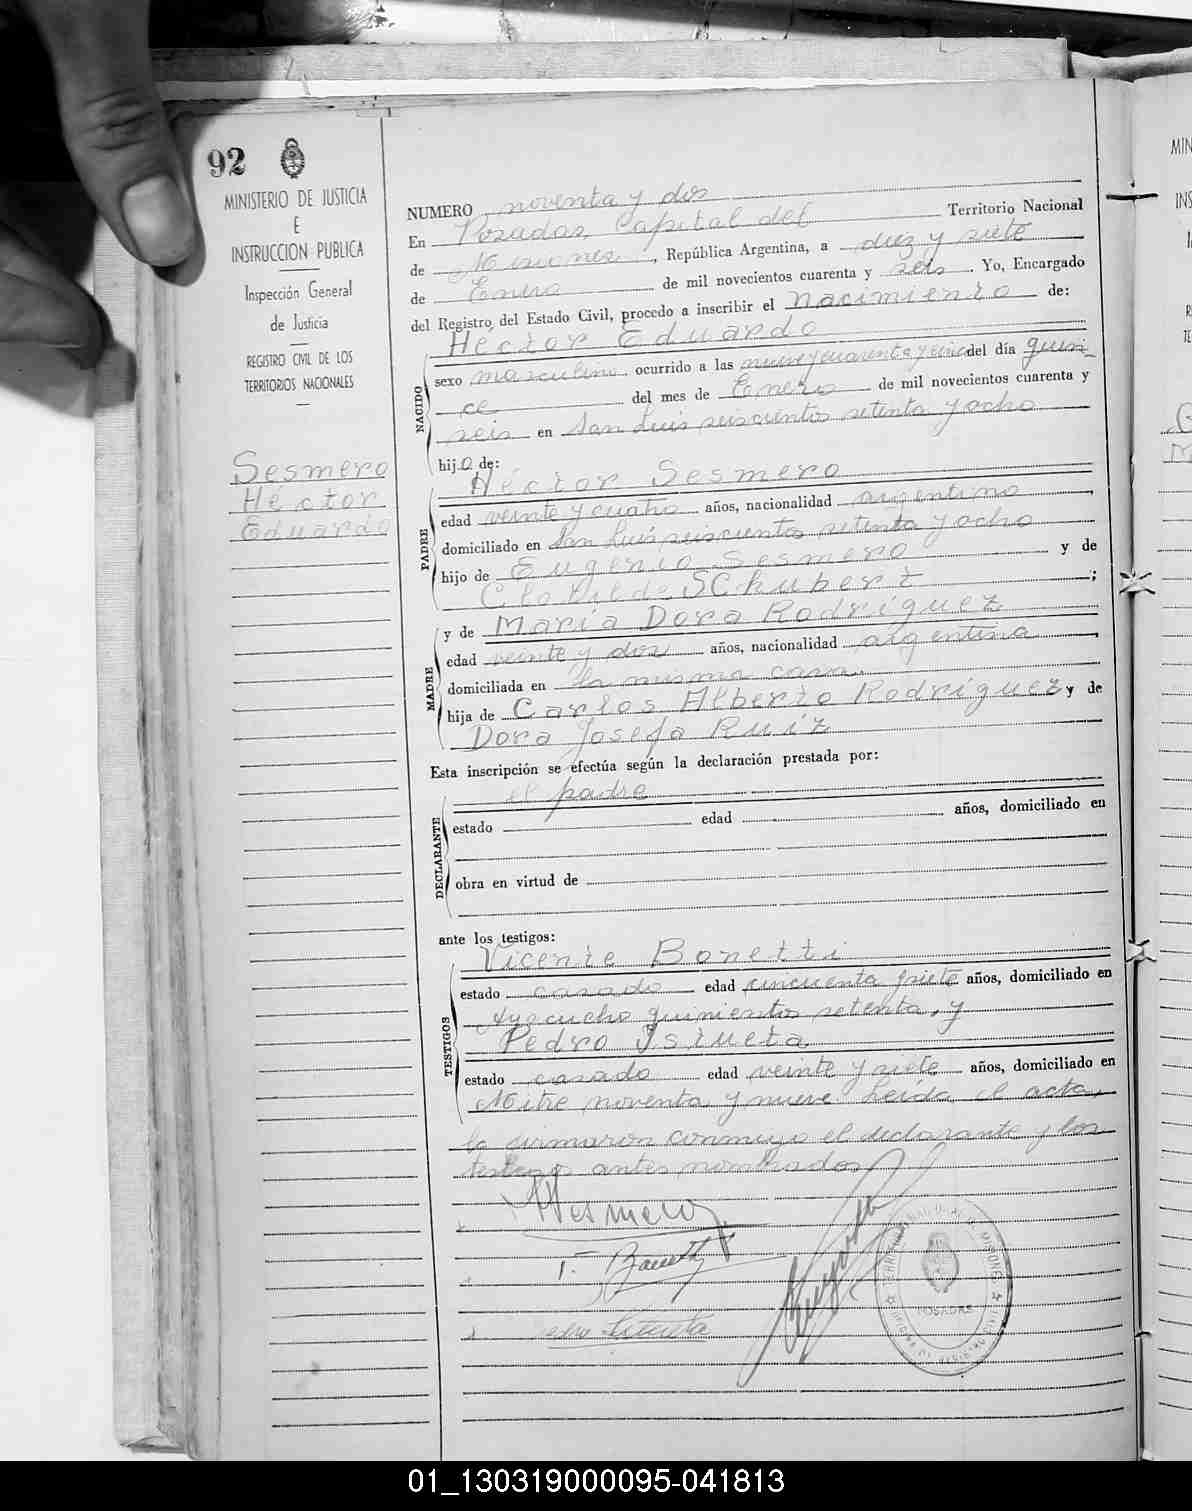 92
MINISTERIO DE JUSTICIA
E
INSTRUCCION PUBLICA
Inspección General
de Justicia
REGISTRO CIVIL DE LOS
TERRITORIOS NACIONALES
Sesmero
Héctor
Eduardo
NUMERO noventa y dos
En Posadas, Capital del Territorio Nacional
de Misiones, República Argentina, a diez y siete
de Enero de mil novecientos cuarenta y seis. Yo, Encargado
del Registro del Estado Civil, procedo a inscribir el nacimiento de:
NACIDO
Héctor Eduardo
sexo masculino ocurrido a las nueve y cuarenta y cinco del día quin-
ce del mes de Enero de mil novecientos cuarenta y
seis en San Luis seiscientos setenta y ocho
hijo de:
PADRE
Héctor Sesmero
edad veinte y cuatro años, nacionalidad argentino,
domiciliado en San Luis seiscientos setenta y ocho
hijo de Eugenio Sesmero y de
Clotilde Schubert;
MADRE
y de María Dora Rodríguez
edad veinte y dos años, nacionalidad argentina,
domiciliada en la misma casa,
hija de Carlos Alberto Rodríguez y de
Dora Josefa Ruiz
Esta inscripción se efectúa según la declaración prestada por:
DECLARANTE
el padre
estado edad años, domiciliado en
obra en virtud de
ante los testigos:
TESTIGOS
Vicente Bonetti
estado casado edad cincuenta y siete años, domiciliado en
Ayacucho quinientos setenta, y
Pedro Isturta
estado casado edad veinte y siete años, domiciliado en
Mitre noventa y nueve. Leída el acta,
la firmaron conmigo el declarante y los
testigos antes nombrados.
HSesmero
POSADAS
01_130319000095-041813